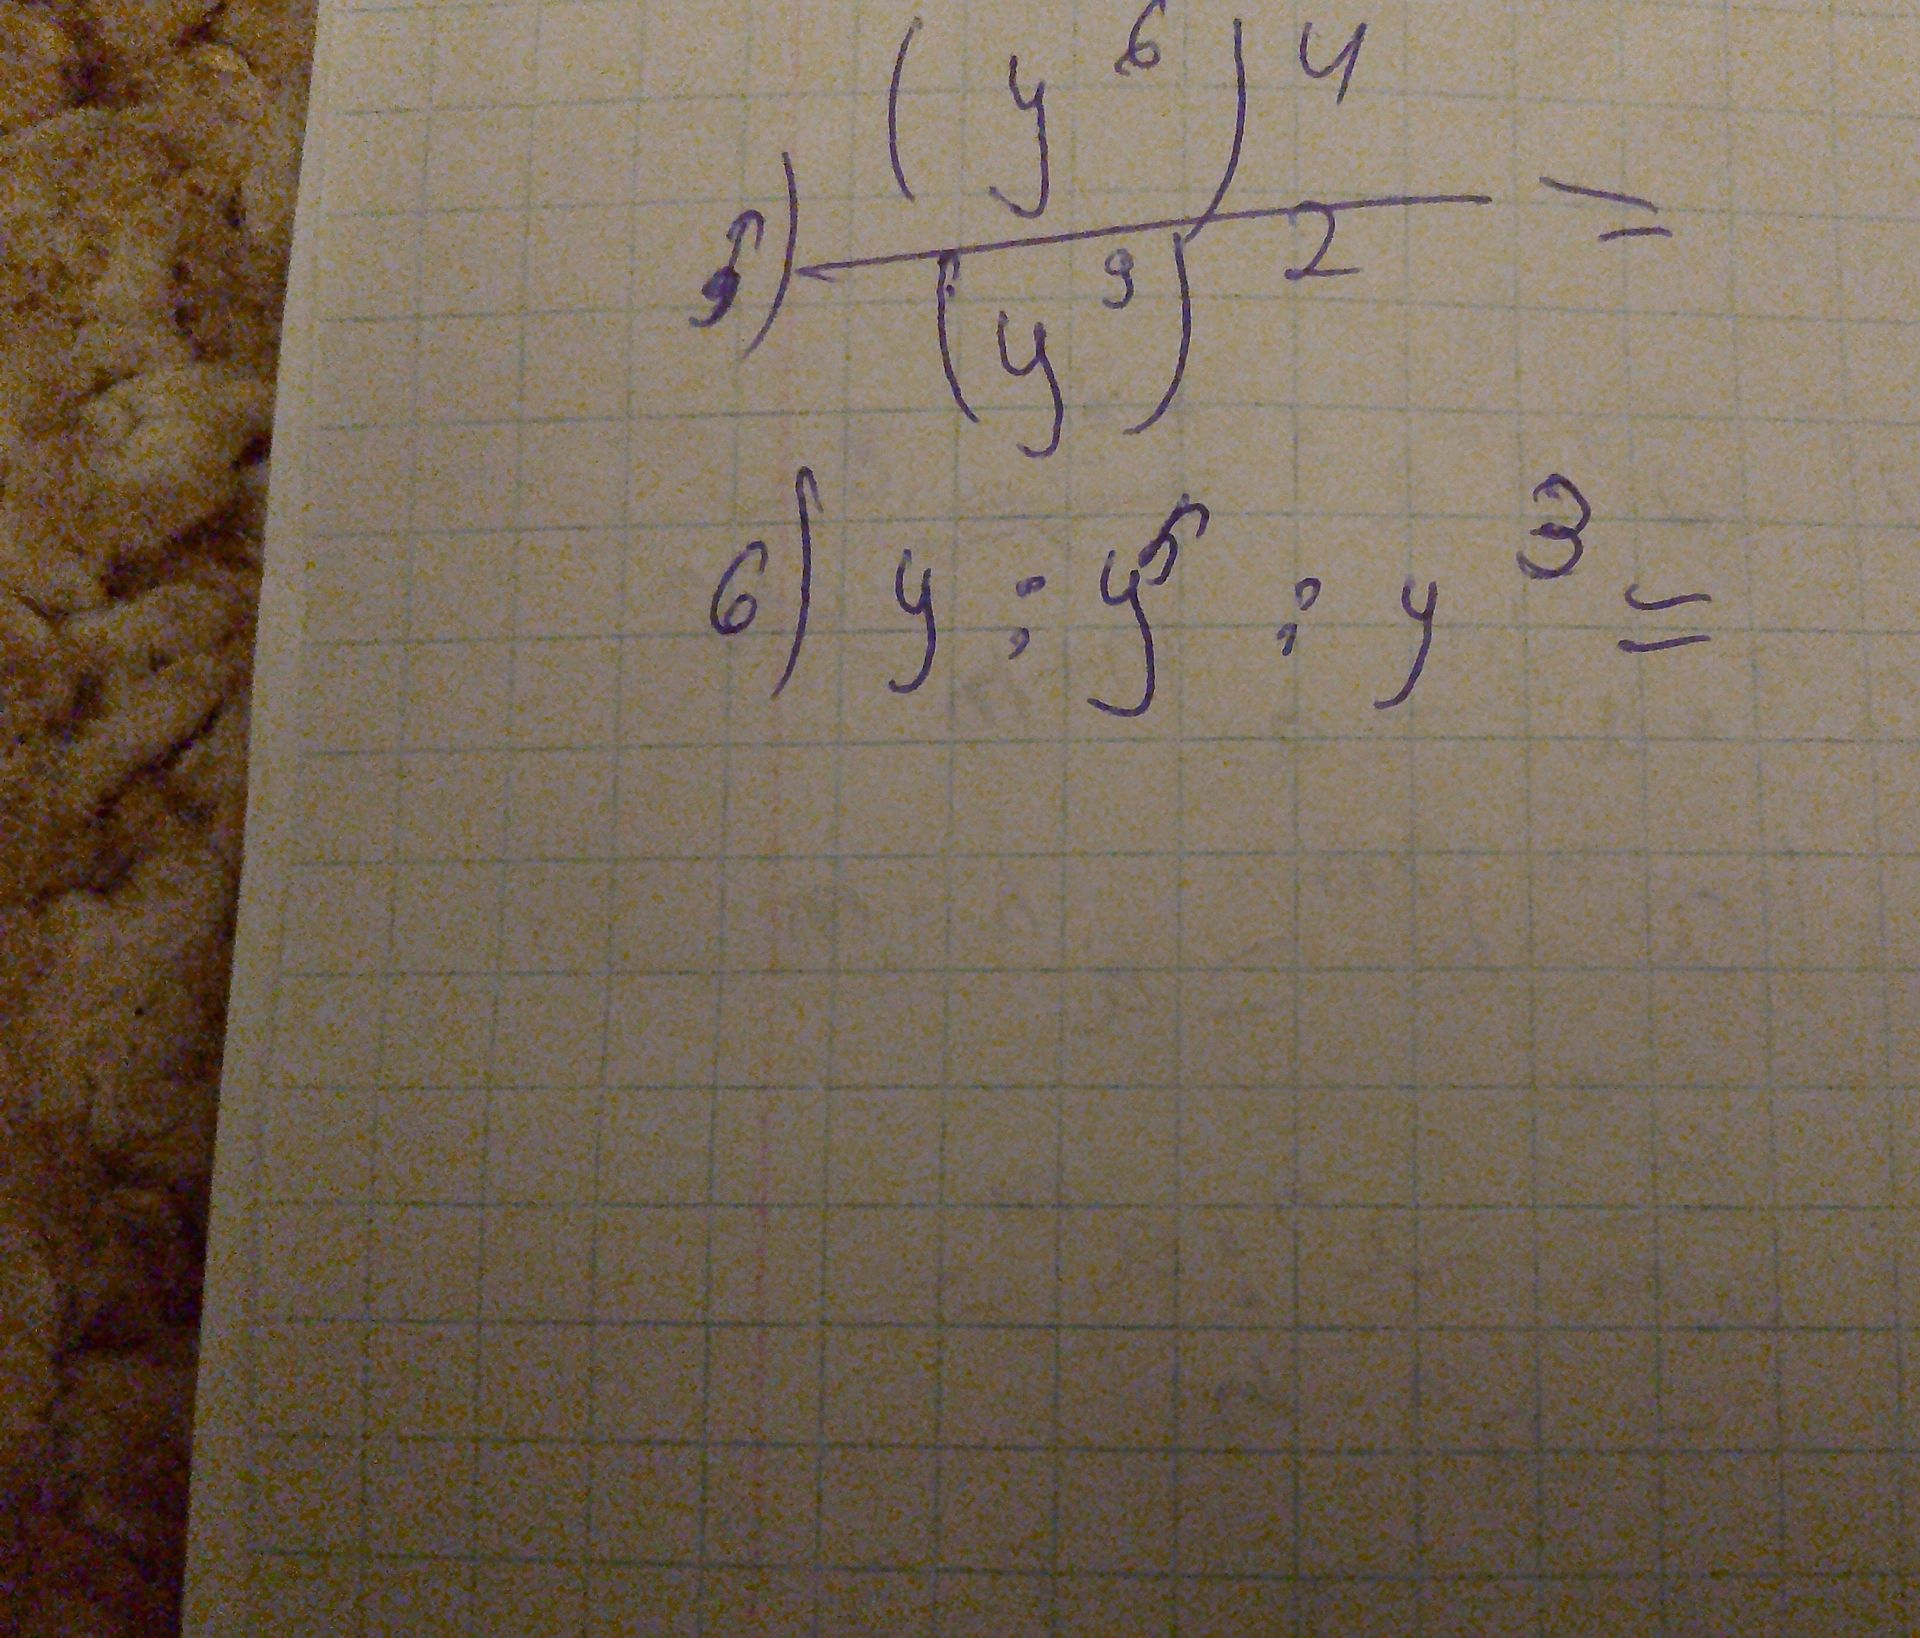 5) (y⁶)⁴ / (y⁹)² =
6) y : y⁵ : y³ =